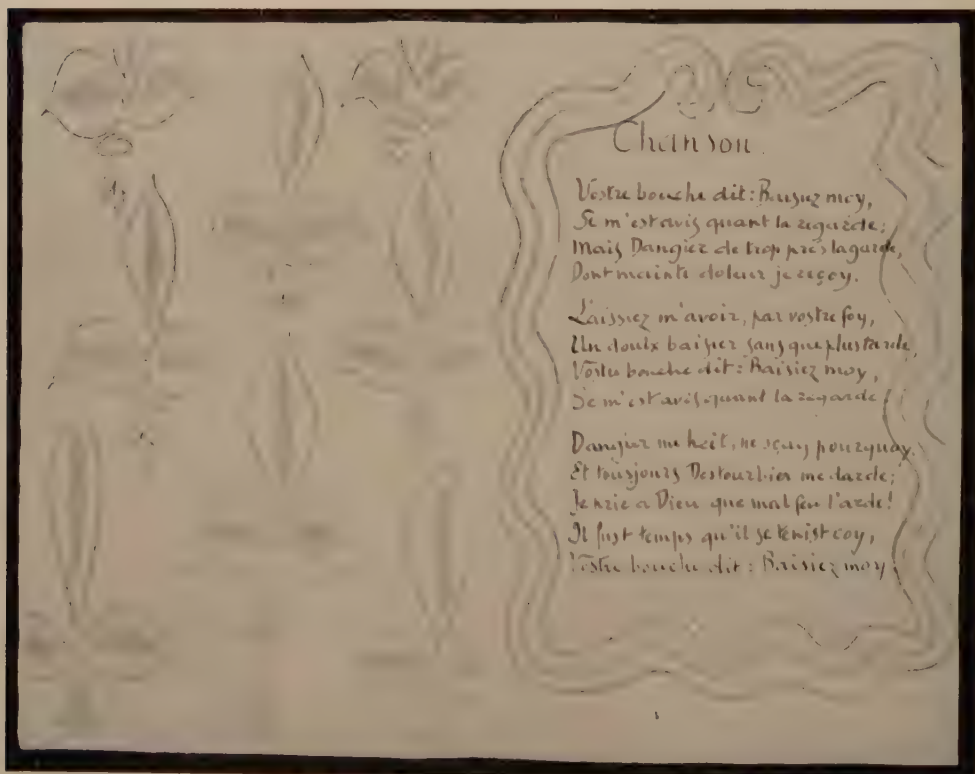 Chanson
Vostre bouche dit : Baisiez moy,
Se m'est avis quant la regarde ;
Mais Dangier de trop près la garde,
Dont mainte doleur je reçoy.
Laissiez m'avoir, par vostre foy,
Un doulx baisier sans que plus tarde,
Vostre bouche dit : Baisiez moy,
Se m'est avis quant la regarde
Dangier me heit, ne sçay pourquoy,
Et tousjours Destourbier me darde ;
Je prie a Dieu que mal feu l'arde !
Il fust temps qu'il se tenist coy,
Vostre bouche dit : Baisiez moy